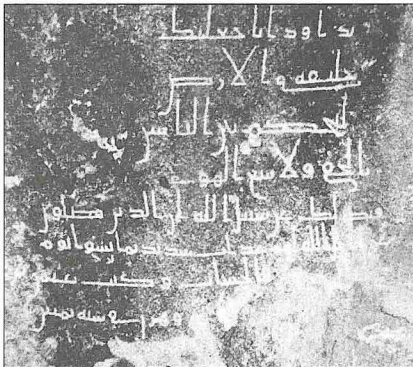 يداود انا جعلنك
خليفه في الارض
لتحكم بين الناس
بالحق ولا تتبع الهوى
فيضلك عن سبيل الله ان الذين يضلون
عن سبيل الله لهم عذاب شديد بما نسوا يوم
الحساب وكتب
سنه ثمنين